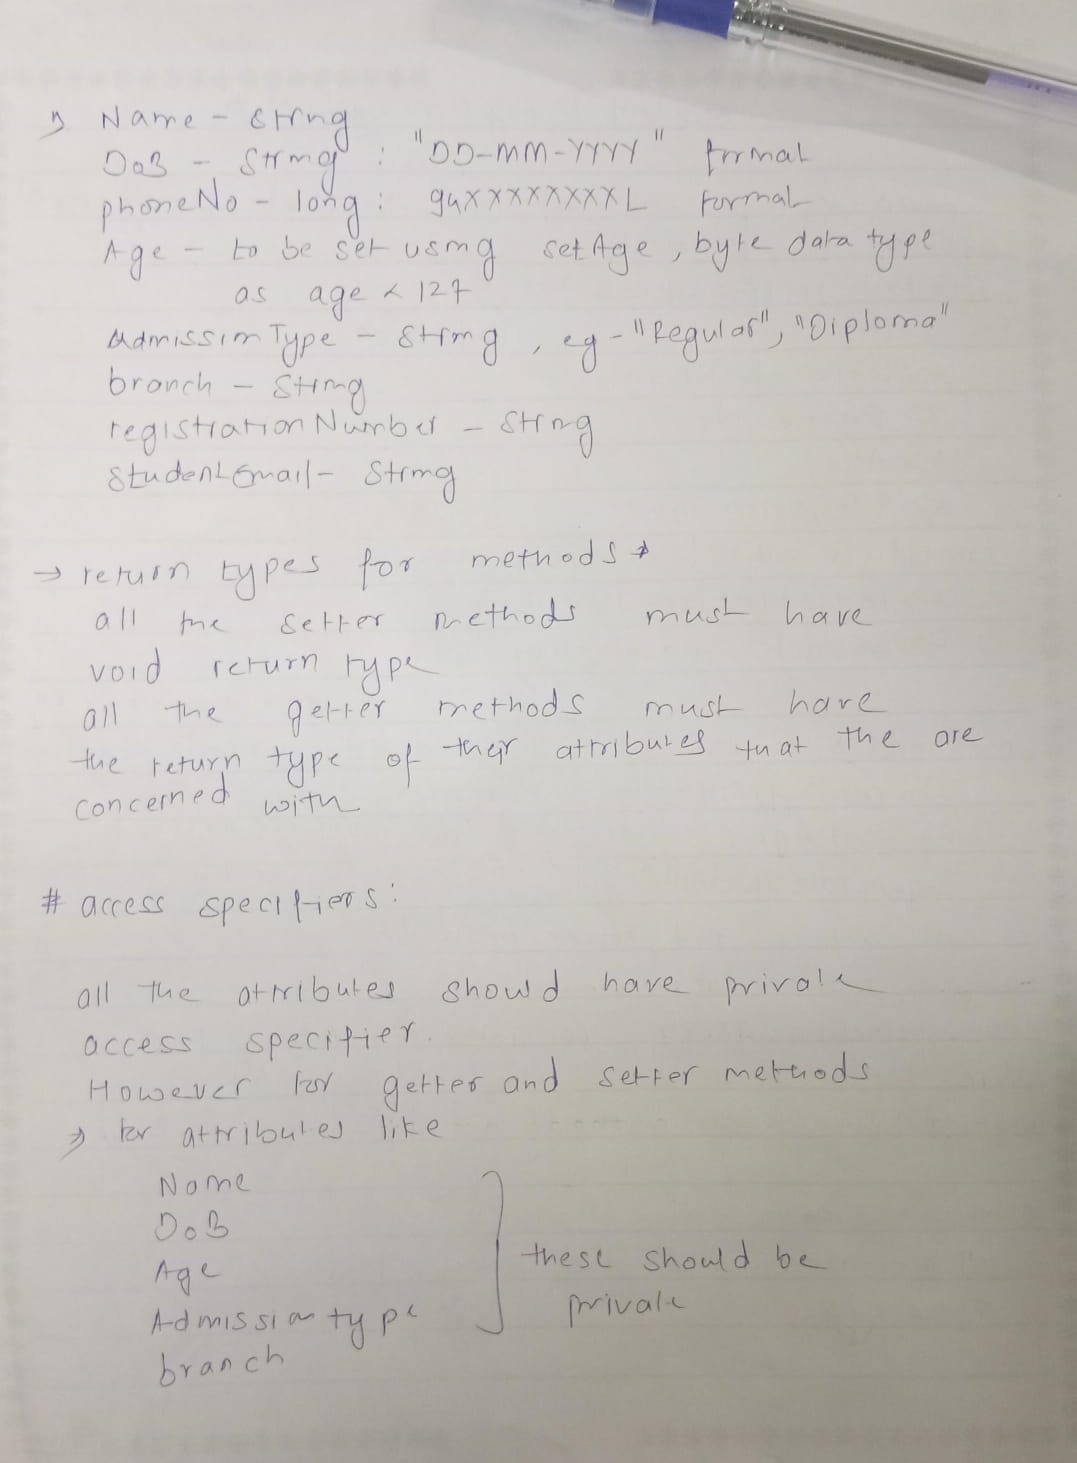 → Name - String
DoB - String : "DD-MM-YYYY" format
phoneNo - long : 94XXXXXXXXL format
Age - to be set using setAge, byte data type
as age < 127
AdmissionType - String, eg - "Regular", "Diploma"
branch - String
registrationNumber - String
StudentEmail - String
→ return types for methods →
all the setter methods must have
void return type
all the getter methods must have
the return type of their attributes that the are
concerned with
# access specifiers:
all the attributes should have private
access specifier.
However for getter and setter methods
→ for attributes like
Name
DoB
Age
Admission type
branch
these should be
private